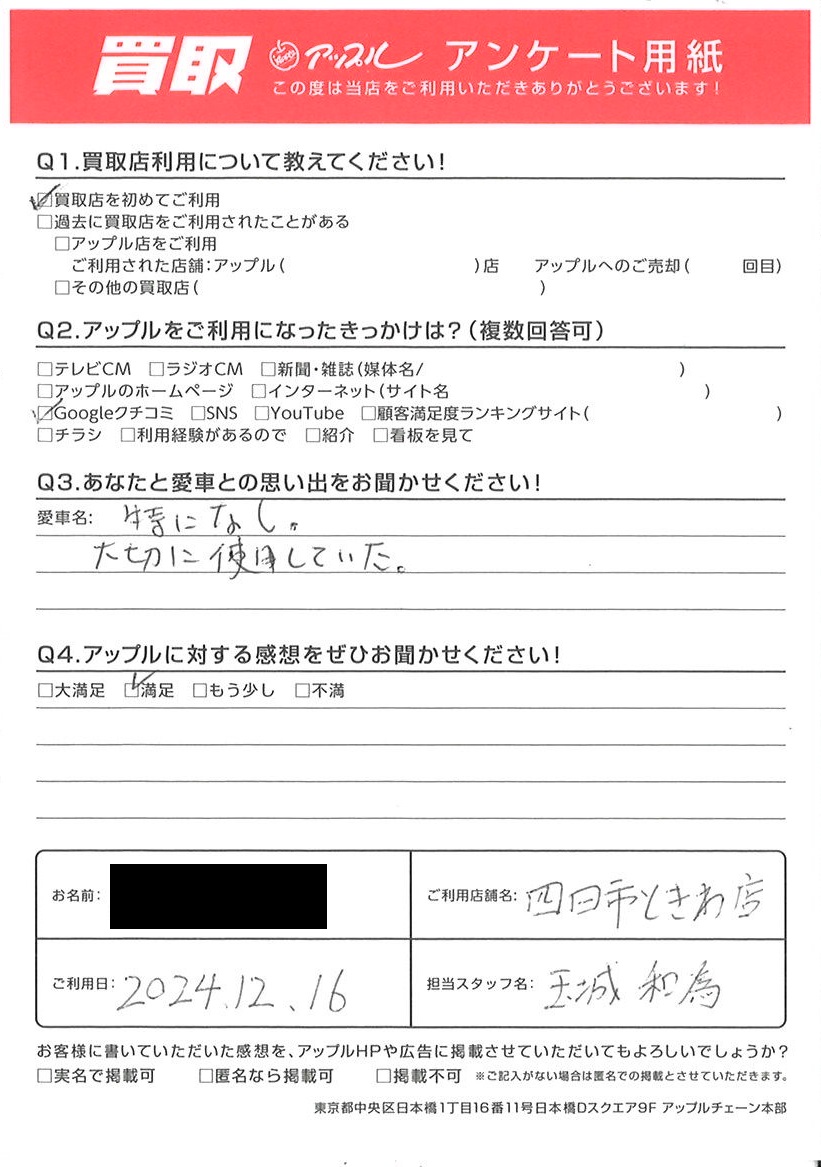 買取 アップル アンケート用紙
この度は当店をご利用いただきありがとうございます!
Q1.買取店利用について教えてください!
☑買取店を初めてご利用
□過去に買取店をご利用されたことがある
□アップル店をご利用
ご利用された店舗:アップル( )店 アップルへのご売却( 回目)
□その他の買取店( )
Q2.アップルをご利用になったきっかけは?(複数回答可)
□テレビCM □ラジオCM □新聞・雑誌(媒体名/ )
□アップルのホームページ □インターネット(サイト名 )
☑Googleクチコミ □SNS □YouTube □顧客満足度ランキングサイト( )
□チラシ □利用経験があるので □紹介 □看板を見て
Q3.あなたと愛車との思い出をお聞かせください!
愛車名: 特になし。
大切に使用していた。
Q4.アップルに対する感想をぜひお聞かせください!
□大満足 ☑満足 □もう少し □不満
お名前:
ご利用店舗名: 四日市ときわ店
ご利用日: 2024.12.16
担当スタッフ名: 玉城 和為
お客様に書いていただいた感想を、アップルHPや広告に掲載させていただいてもよろしいでしょうか?
□実名で掲載可 □匿名なら掲載可 □掲載不可 ※ご記入がない場合は匿名での掲載とさせていただきます。
東京都中央区日本橋1丁目16番11号日本橋Dスクエア9F アップルチェーン本部